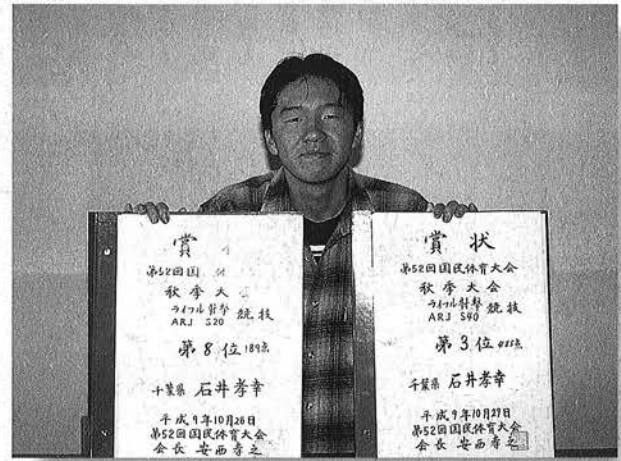 賞
第52回国
秋季大
ライフル射撃 競技
ARJ S20
第8位 189点
千葉県 石井孝幸
平成9年10月26日
第52回国民体育大会
会長 安西孝之
賞 状
第52回国民体育大会
秋季大会
ライフル射撃 競技
ARJ S40
第3位
千葉県 石井孝幸
平成9年10月27日
第52回国民体育大会
会長 安西孝之